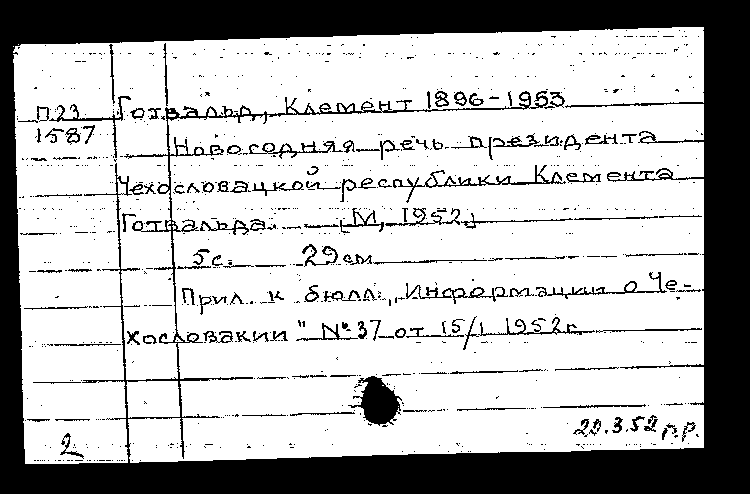 П23 Готвальд, Клемент 1896-1953
1587
Новогодняя речь президента
Чехословацкой республики Клемента
Готвальда. [М, 1952]
5с. 29см
Прил. к бюлл. „Информации о Че-
хословакии" № 37 от 15/I 1952г.
2
22.3.52 п.р.